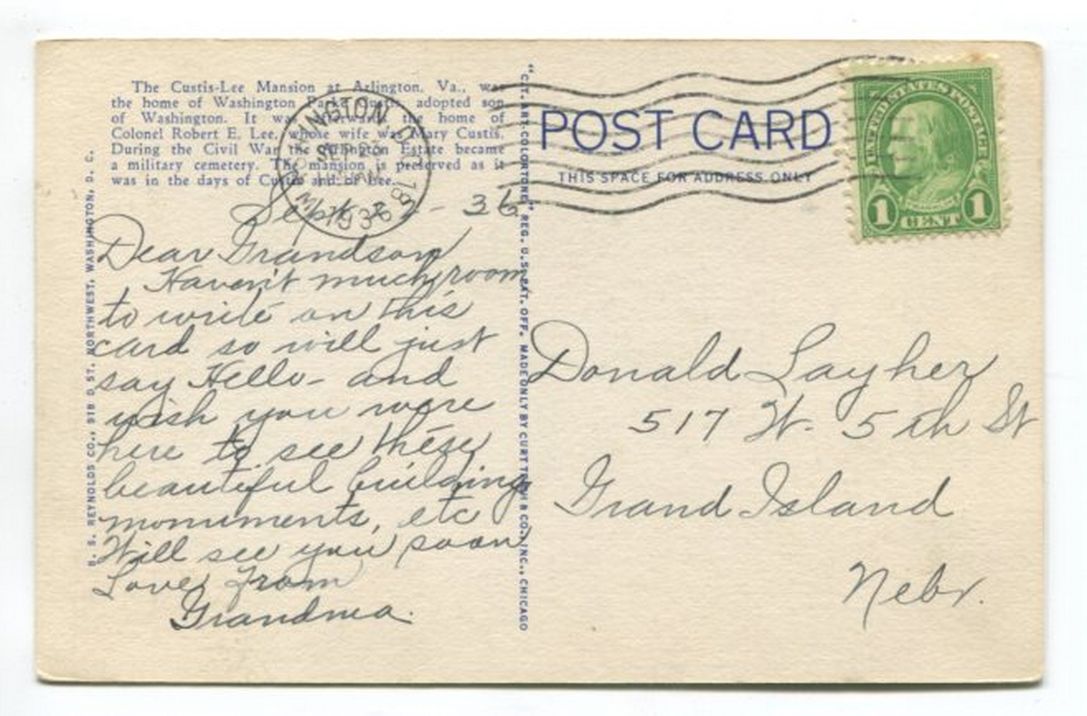 The Custis-Lee Mansion at Arlington, Va., was
the home of Washington Parke Custis, adopted son
of Washington. It was afterwards the home of
Colonel Robert E. Lee, whose wife was Mary Custis.
During the Civil War the Arlington Estate became
a military cemetery. The mansion is preserved as it
was in the days of Custis and of Lee.
WASHINGTON
SEP
1936
Sept. - 36
Dear Grandson
Haven't much room
to write on this
card so will just
say Hello - and
wish you were
here to see these
beautiful building
monuments, etc
Will see you soon
Love from
Grandma.
B. S. REYNOLDS CO., D ST. NORTHWEST, WASHINGTON, D. C.
"C.T. ART-COLORTONE" REG. U.S. PAT. OFF. MADE ONLY BY CURT TEICH & CO., INC., CHICAGO
POST CARD
THIS SPACE FOR ADDRESS ONLY
UNITED STATES POSTAGE
1 CENT 1
Donald Layher
517 W. 5th St
Grand Island
Nebr.